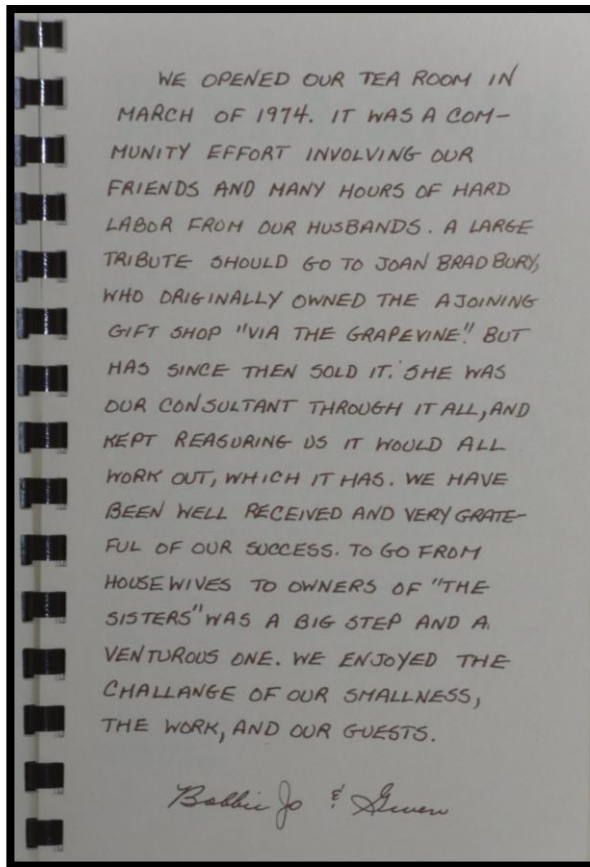 WE OPENED OUR TEA ROOM IN
MARCH OF 1974. IT WAS A COM-
MUNITY EFFORT INVOLVING OUR
FRIENDS AND MANY HOURS OF HARD
LABOR FROM OUR HUSBANDS. A LARGE
TRIBUTE SHOULD GO TO JOAN BRADBURY,
WHO ORIGINALLY OWNED THE AJOINING
GIFT SHOP "VIA THE GRAPEVINE". BUT
HAS SINCE THEN SOLD IT. SHE WAS
OUR CONSULTANT THROUGH IT ALL, AND
KEPT REASURING US IT WOULD ALL
WORK OUT, WHICH IT HAS. WE HAVE
BEEN WELL RECEIVED AND VERY GRATE-
FUL OF OUR SUCCESS. TO GO FROM
HOUSEWIVES TO OWNERS OF "THE
SISTERS" WAS A BIG STEP AND A
VENTUROUS ONE. WE ENJOYED THE
CHALLANGE OF OUR SMALLNESS,
THE WORK, AND OUR GUESTS.
Bobbie Jo & Gwen